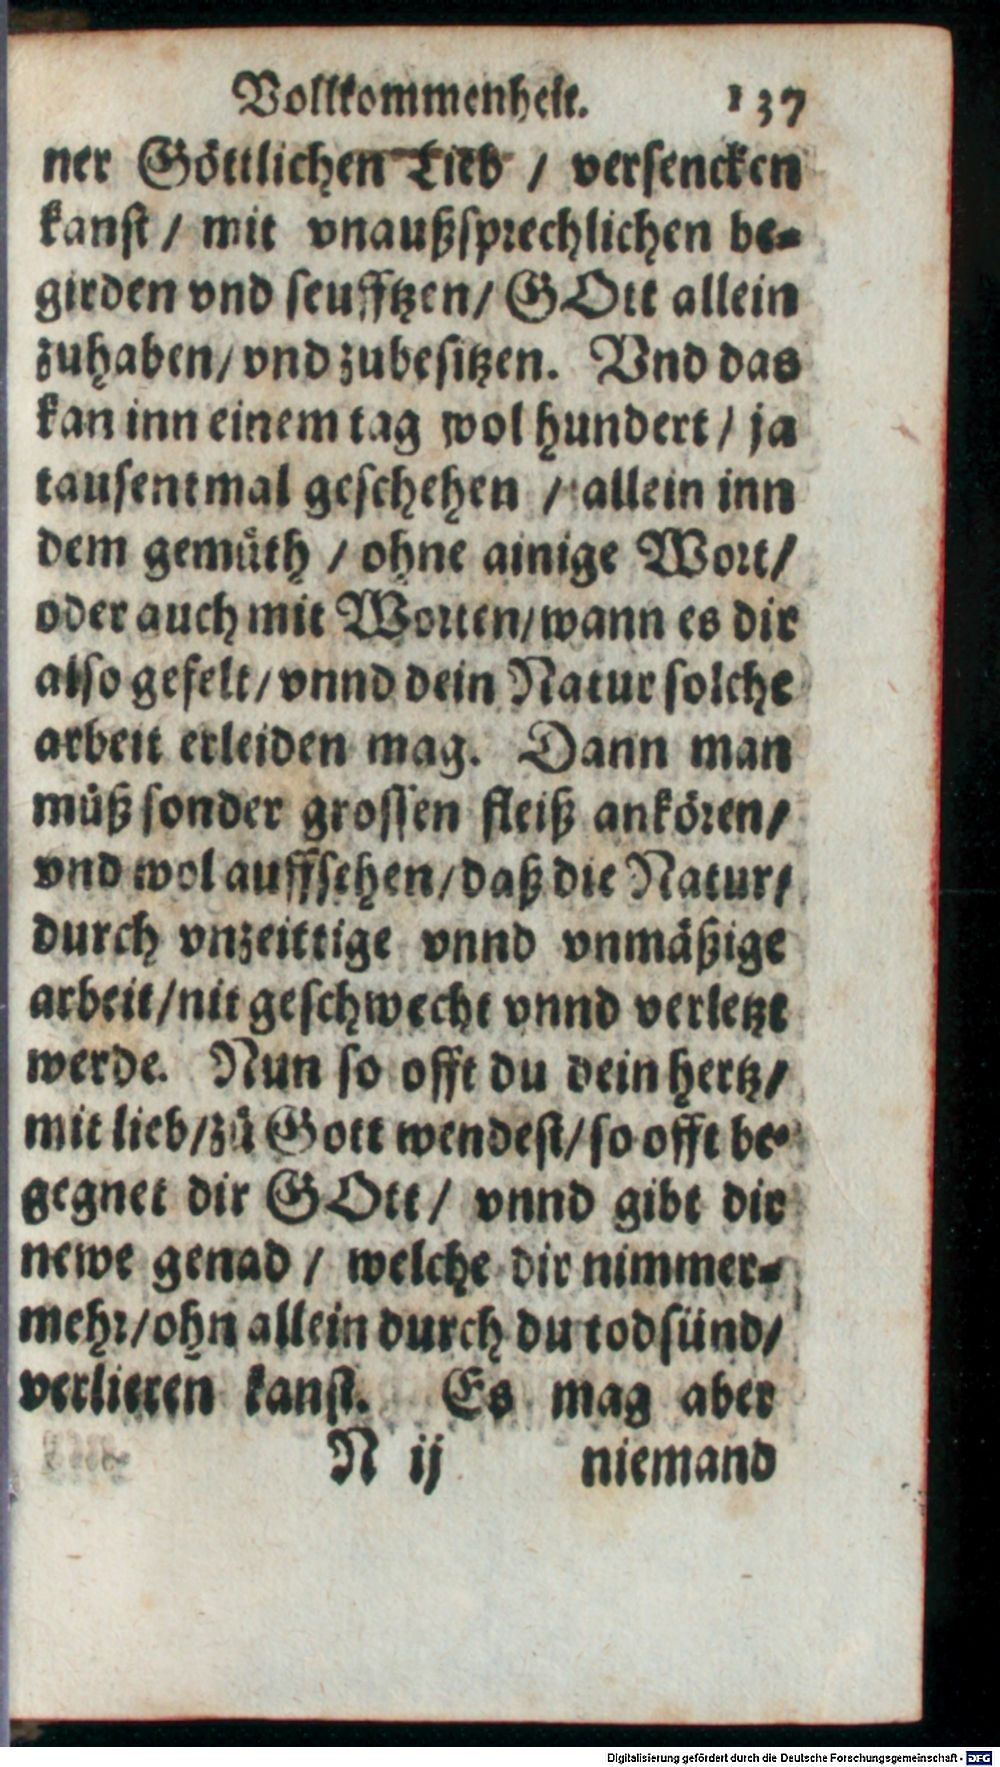 Vollkommenheit. 137
ner Göttlichen Lieb / versencken
kanst / mit vnaußsprechlichen be-
girden vnd seufftzen / GOtt allein
zuhaben / vnd zubesitzen. Vnd das
kan inn einem tag wol hundert / ja
tausentmal geschehen / allein inn
dem gemüth / ohne ainige Wort /
oder auch mit Worten / wann es dir
also gefelt / vnnd dein Natur solche
arbeit erleiden mag. Dann man
müß sonder grossen fleiß ankören /
vnd wol auffsehen / daß die Natur /
durch vnzeittige vnnd vnmäßige
arbeit / nit geschwecht vnnd verletzt
werde. Nun so offt du dein hertz /
mit lieb / zů Gott wendest / so offt be-
gegnet dir GOtt / vnnd gibt dir
newe genad / welche dir nimmer-
mehr / ohn allein durch du todsünd /
verlieren kanst. Es mag aber
N ij niemand
Digitalisierung gefördert durch die Deutsche Forschungsgemeinschaft - DFG